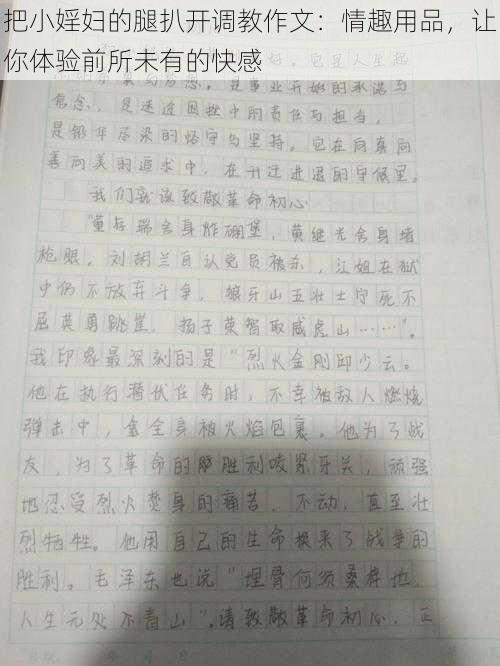 把小婬妇的腿扒开调教作文：情趣用品，让
你体验前所未有的快感
信念，是迷途困挫中的责任与担当，
是铅华尽染的恪守与坚持。它在向真向
善向美的追求中，在升迁进退的守候里。
我们就该致敬革命初心
“董存瑞舍身炸碉堡，黄继光舍身堵
枪眼，刘胡兰自认党员被杀，江姐在狱
中仍不放弃斗争，狼牙山五壮士宁死不
屈英勇跳崖，扬子荣智取威虎山……”。
我印象最深刻的是“烈火金刚邱少云。
他在执行潜伏任务时，不幸被敌人燃烧
弹击中，全身被火焰包裹。他为了战
友，为了革命的胜利唆紧牙关，顽强
地忍受烈火焚身的痛苦，不动，直至壮
烈牺牲。他用自己的生命换来了战争的
胜利。毛泽东也说“埋骨何须桑梓地，
人生无处不青山”。请致敬革命初心，正